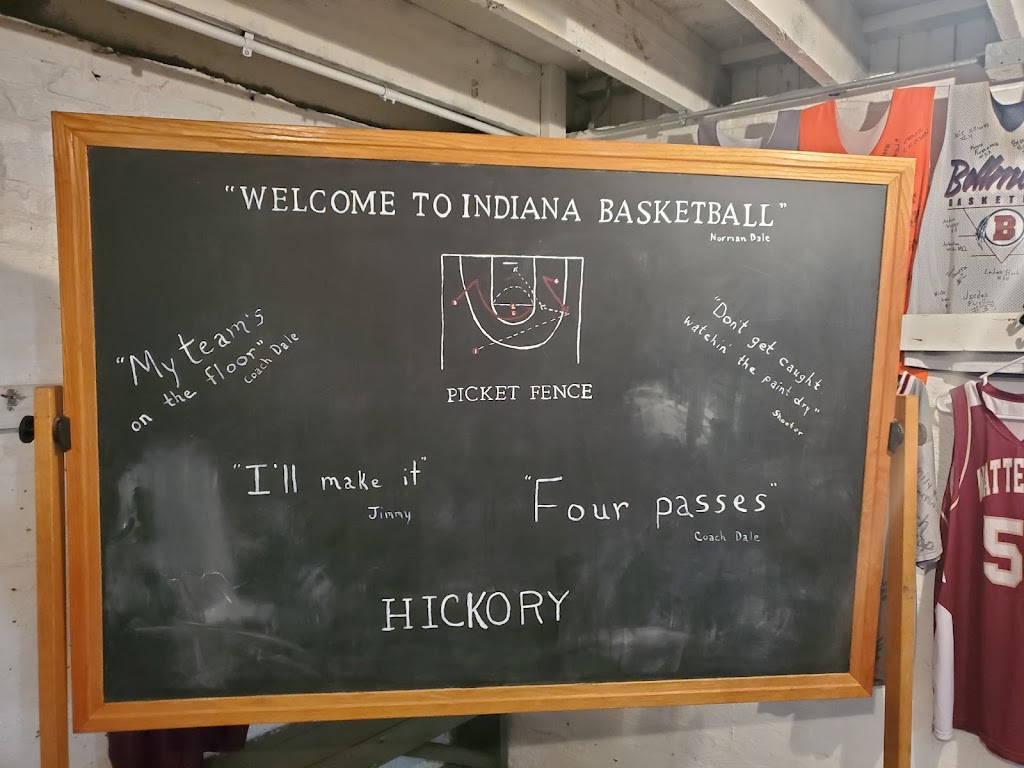 "WELCOME TO INDIANA BASKETBALL"
Norman Dale
"My team's
on the floor"
Coach Dale
PICKET FENCE
"Don't get caught
watchin' the paint dry"
Shooter
"I'll make it"
Jimmy
"Four passes"
Coach Dale
HICKORY
B
5